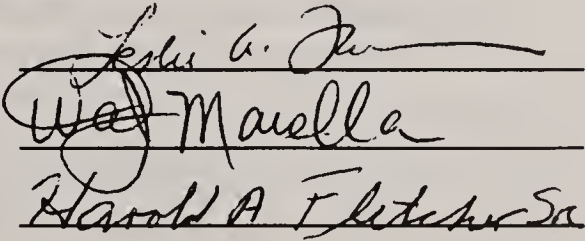 Leslie A.
Walt Marella
Harold A Fletcher Sr